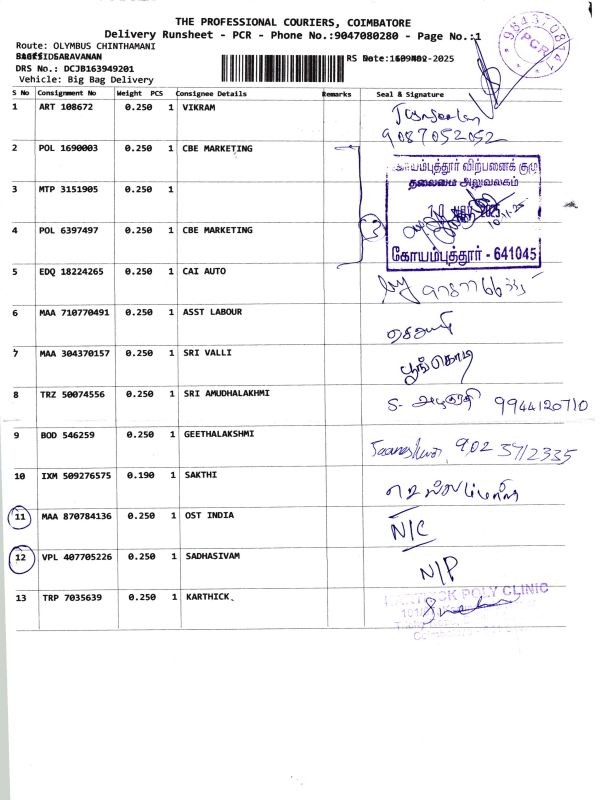 THE PROFESSIONAL COURIERS, COIMBATORE
Delivery Runsheet - PCR - Phone No.:9047080280 - Page No.:1
Route: OLYMBUS CHINTHAMANI
SARAVANAN
RS Date: -2025
DRS No.: DCJB163949201
Vehicle: Big Bag Delivery
* 9843708741 *
PCR
S No Consignment No Weight PCS Consignee Details Remarks Seal & Signature
1 ART 108672 0.250 1 VIKRAM
9087052052
2 POL 1690003 0.250 1 CBE MARKETING
கோயம்புத்தூர் விற்பனைக் குழு
தலைமை அலுவலகம்
3 MTP 3151905 0.250 1
2025
10.11.25
4 POL 6397497 0.250 1 CBE MARKETING
கோயம்புத்தூர் - 641045
5 EDQ 18224265 0.250 1 CAI AUTO
6 MAA 710770491 0.250 1 ASST LABOUR
7 MAA 304370157 0.250 1 SRI VALLI பூங்கொடி
8 TRZ 50074556 0.250 1 SRI AMUDHALAKHMI S. 9944120710
9 BOD 546259 0.250 1 GEETHALAKSHMI 902 3712335
10 IXM 509276575 0.190 1 SAKTHI
11 MAA 870784136 0.250 1 OST INDIA N/C
12 VPL 407705226 0.250 1 SADHASIVAM N/P
13 TRP 7035639 0.250 1 KARTHICK.
POLY CLINIC